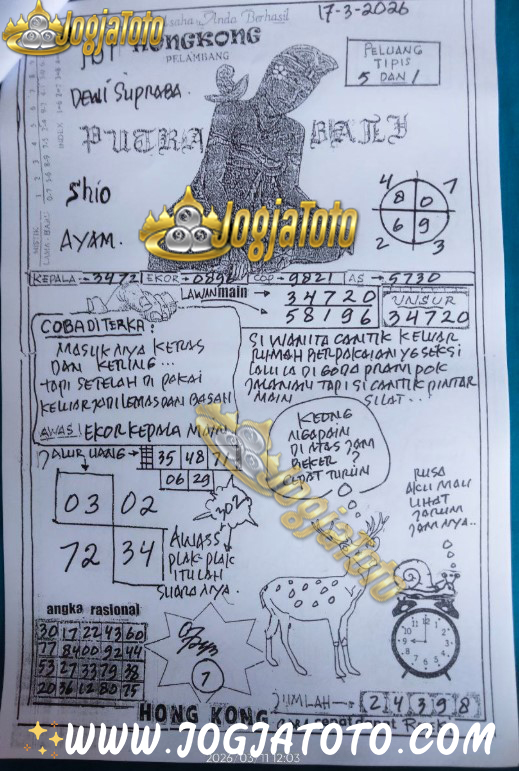 JogjaToto
Usaha Anda Berhasil
17-3-2026
HONGKONG
PELAMBANG
PELUANG
TIPIS
5 DAN 1
DEWI SUPRABA.
PUTRA BALI
Shio
AYAM.
4 7
8 0
6 9
2 3
JogjaToto
KEPALA → 3472 EKOR → 0896 COP → 9821 AS → 5730
LAWAN main → 34720
58196
UNSUR
34720
COBA DITERKA:
MASUKNYA KERAS
DAN KERING...
TAPI SETELAH DI PAKAI
KELUAR JADI LEMAS DAN BASAH
AWAS! EKOR KEPALA MAIN
SI WANITA CANTIK KELUAR
RUMAH BERPAKAIAN YG SEKSI
LALU IA DI GODA PRAMPOK
JALANAN TAPI SI CANTIK PINTAR
MAIN SILAT...
KEONG
NGAPAIN
DI ATAS JAM
BEKER?
CEPAT TURUN
JALUR UANG → 35 48
06 29
302
03 02
72 34
AWASS
PLAK-PLAK
ITULAH
SUARANYA.
RUSA
AKU MAU
LIHAT
JARUM
JAMNYA..
JogjaToto
angka rasional
30 17 22 43 60
77 84 00 92 44
53 27 33 79 38
20 36 12 80 75
7
JUMLAH → 2 4 3 9 8
HONG KONG
WWW.JOGJATOTO.COM
2026/03/11 12:03